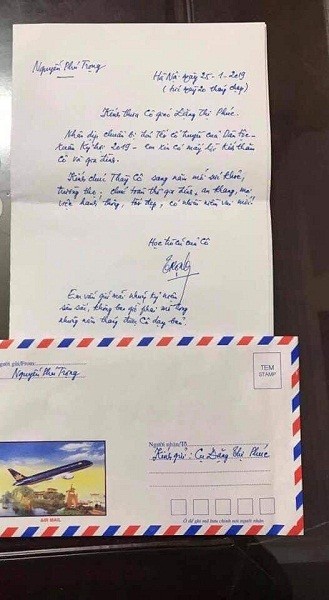 Nguyễn Phú Trọng
Hà Nội ngày 25-1-2019
(tức ngày 20 tháng chạp)
Kính thưa Cô giáo Đặng Thị Phúc.
Nhân dịp chuẩn bị đón Tết cổ truyền của Dân tộc -
Xuân Kỷ Hợi 2019 - Em xin có mấy lời kính thăm
Cô và gia đình.
Kính chúc Thầy Cô sang năm mới sức khỏe,
trường thọ; chúc toàn thể gia đình an khang, mọi
việc hanh thông, tốt đẹp, có nhiều niềm vui mới.
Học trò cũ của Cô
Trọng
Em vẫn giữ mãi những kỷ niệm
sâu sắc, không bao giờ phai mờ trong
những năm tháng được Cô dạy bảo.
Người gửi/From:
Nguyễn Phú Trọng
TEM
STAMP
Người nhận/To:
Kính gửi: Cụ Đặng Thị Phúc
AIR MAIL
Ô để ghi mã bưu chính nơi người nhận